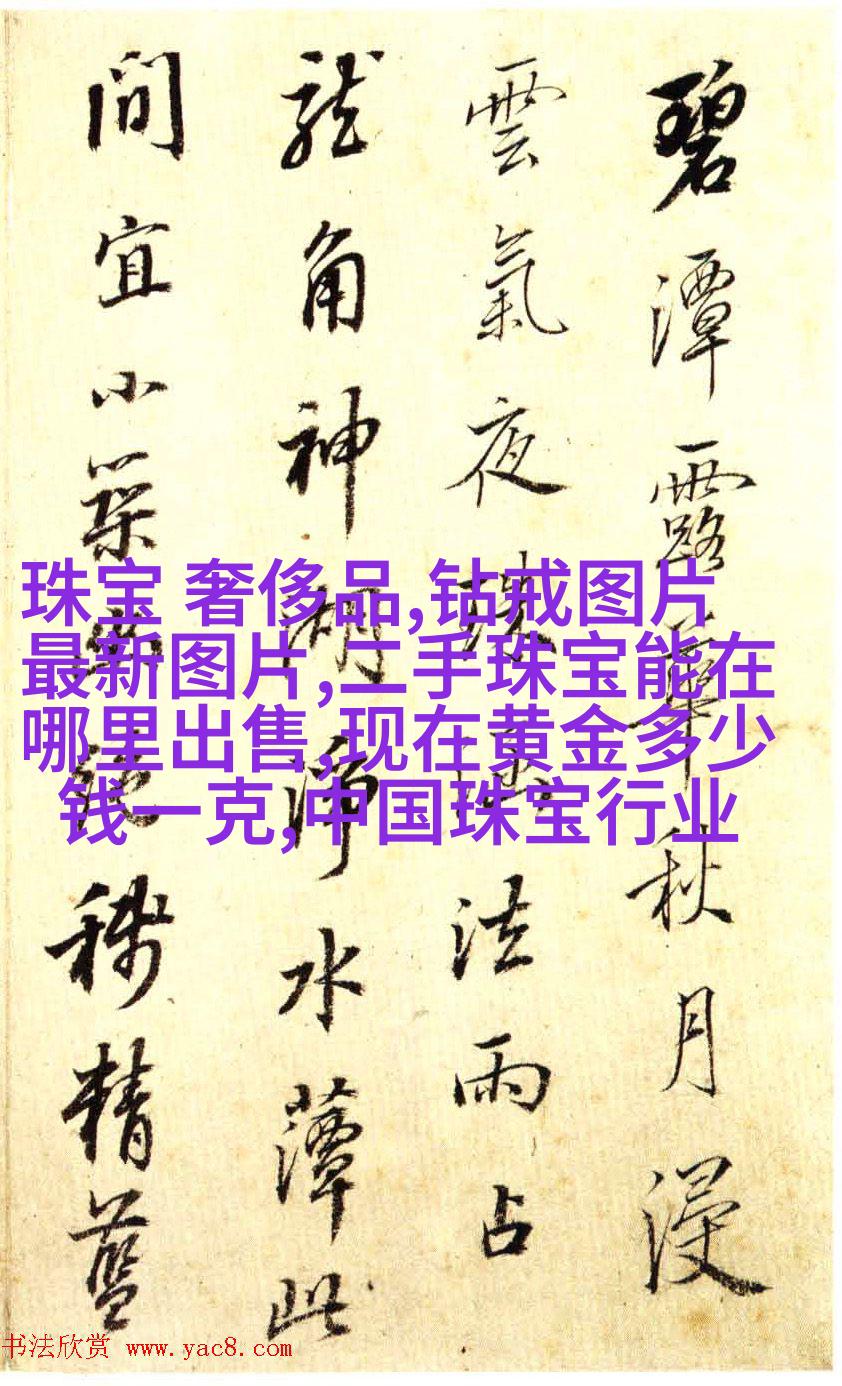 碧潭露華秋月浸
雲氣夜法雨占
龍角神湖淨水蕈此
間宜小築絕稱精藍
珠宝 奢侈品,钻戒图片
最新图片,二手珠宝能在
哪里出售,现在黄金多少
钱一克,中国珠宝行业
书法欣赏 www.yac8.com